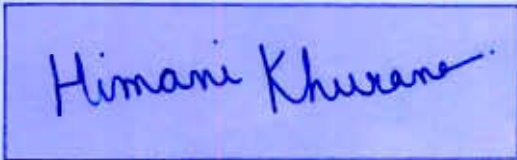 Himani Khurana